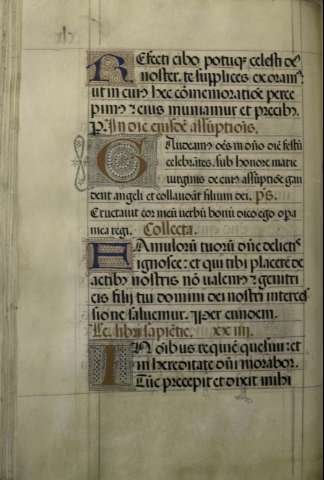 Refecti cibo potuq; celesti de9
noster. te supplices exoram9
ut in cui9 hec cōmemoratiōe perce
pim9: ei9 muniamur et precib9.
P. In die eiusdē assūptionis.
Gaudeam9 oēs in dño diē festū
celebrātes. sub honore marie
virginis de cui9 assūptiōe gau
dent angeli et collaudāt filium dei. ps.
Eructauit cor meū uerbū bonū dico ego opa
mea regi. Collecta.
Famulorū tuorū dñe delictis
ignosce: et qui tibi placere de
actib9 nostris nō ualem9: genitri
cis filij tui domini dei nostri interces
sione saluemur. Per eundem.
Le. libri sapiētie. xxiiij.
In oib9 requiē quesiui: et
in hereditate dñi morabor.
Tūc precepit et dixit mihi